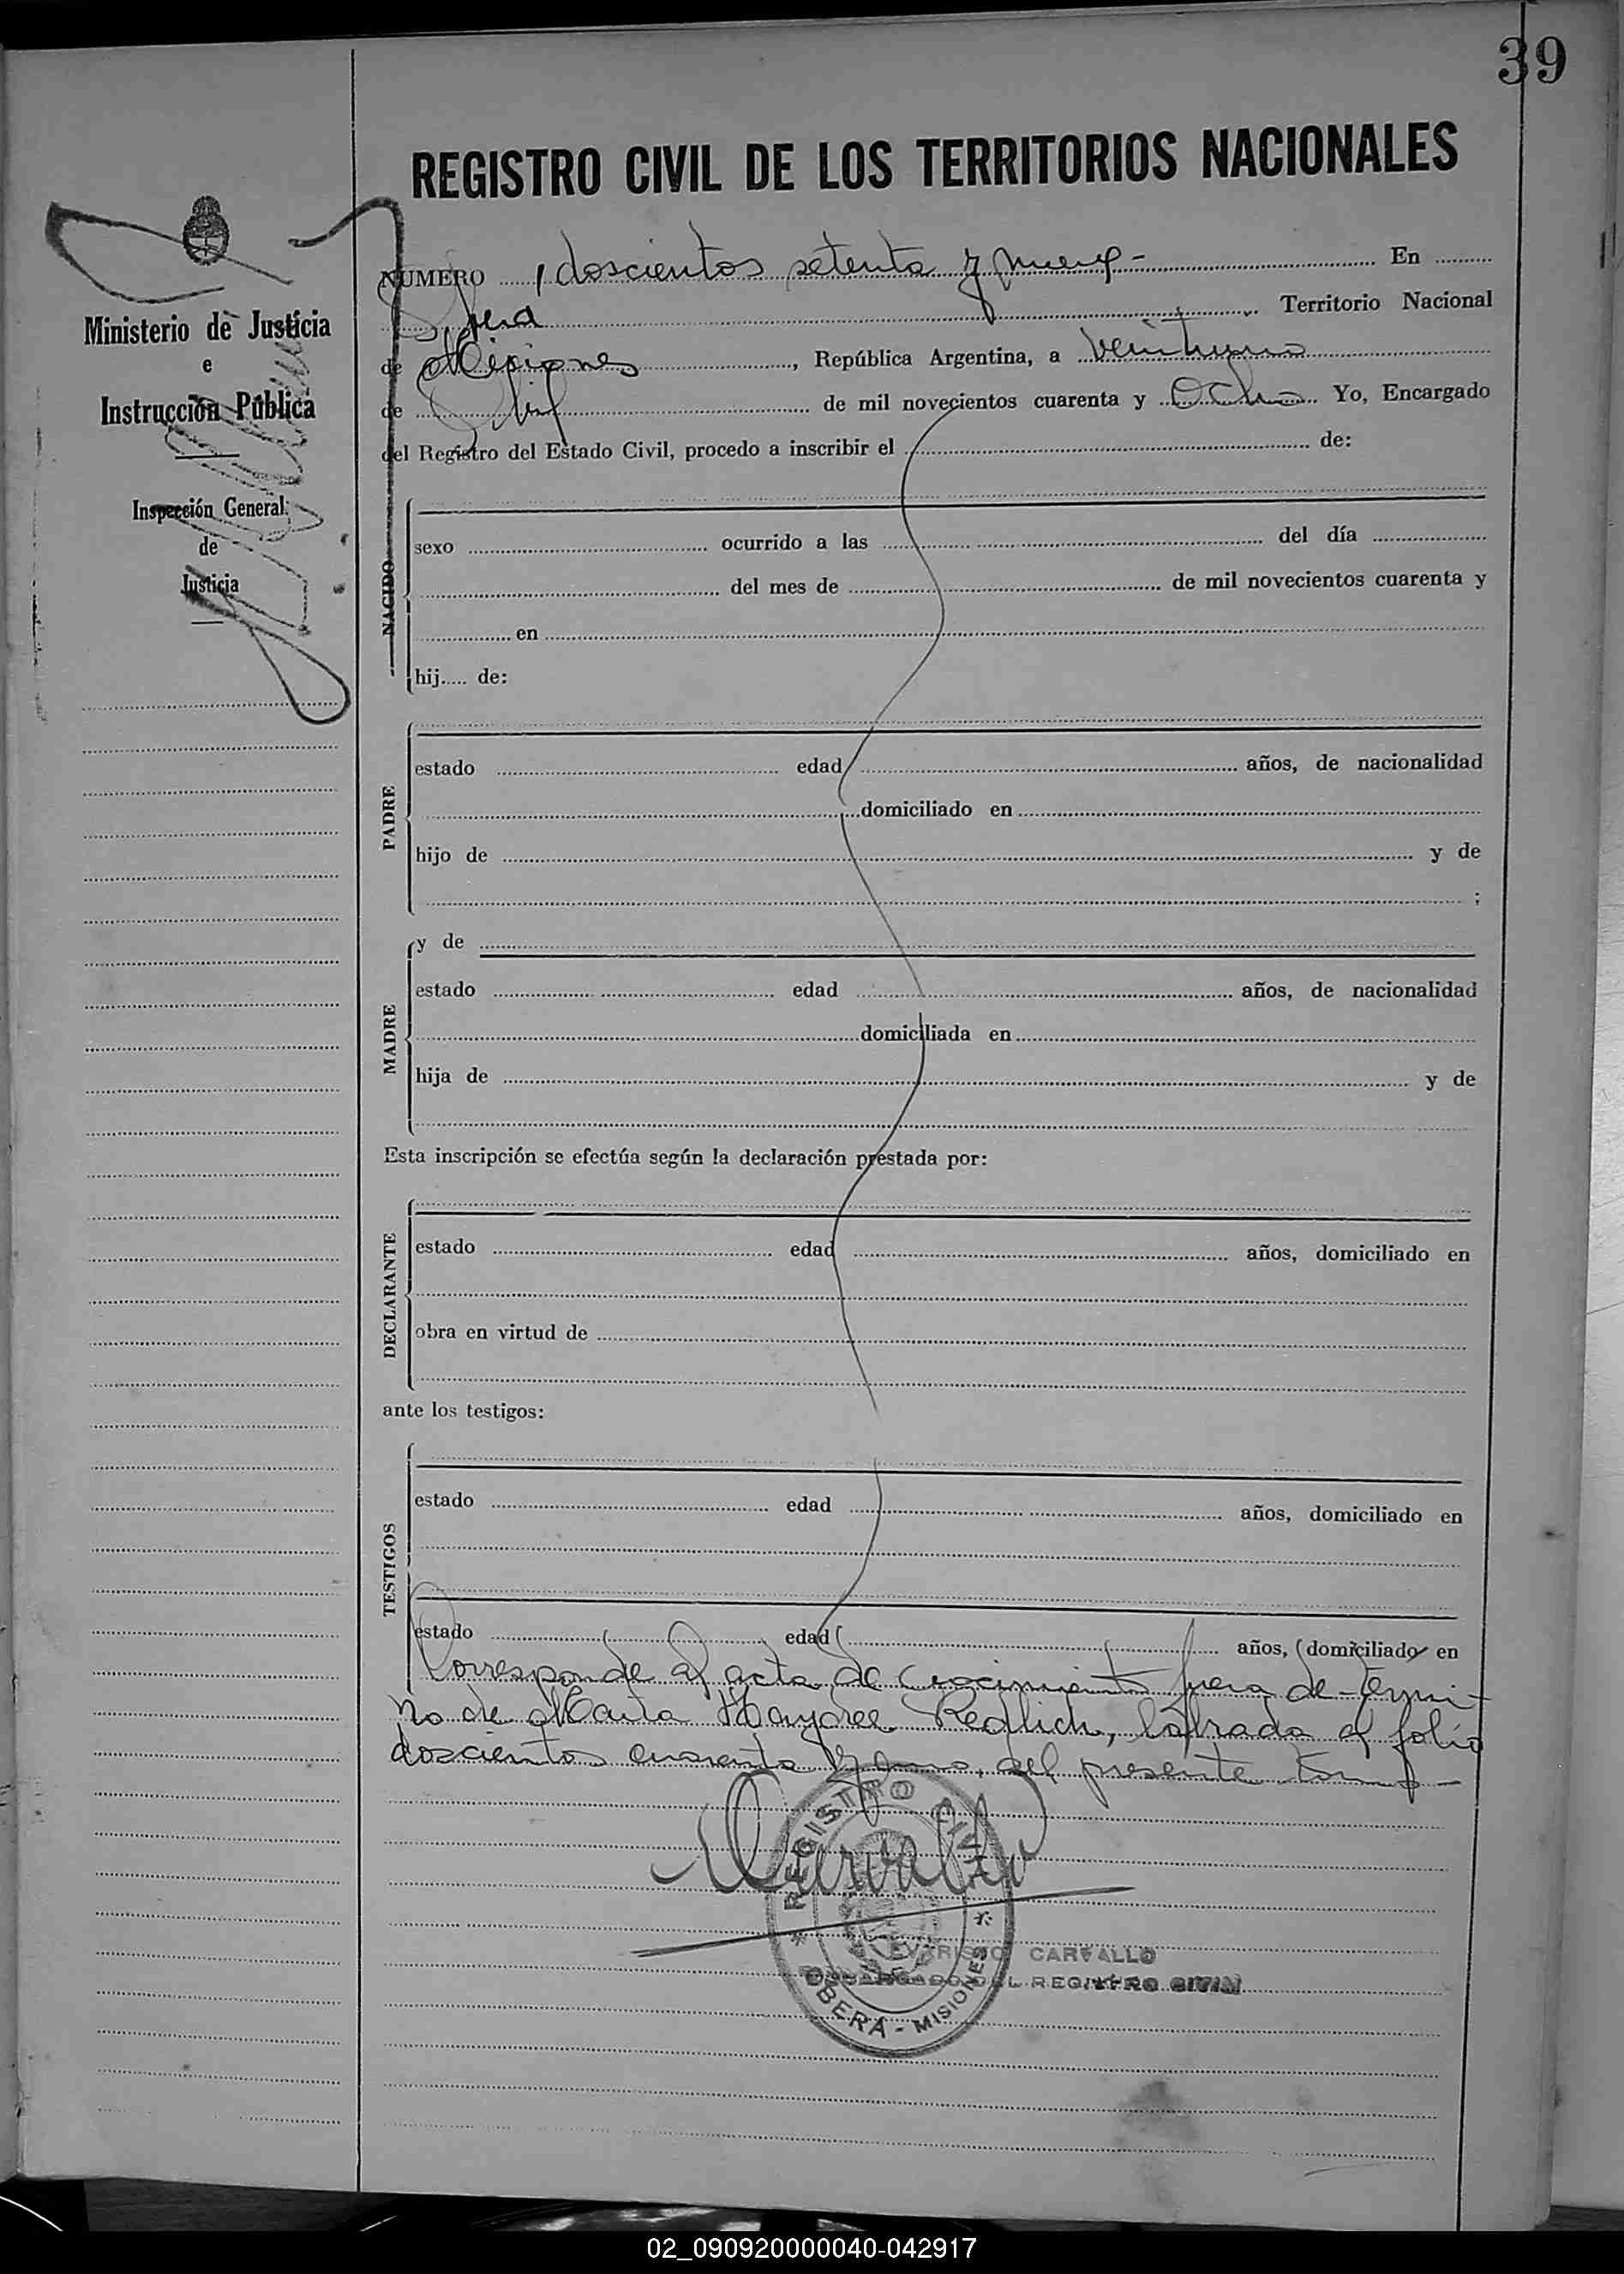 39
REGISTRO CIVIL DE LOS TERRITORIOS NACIONALES
Ministerio de Justicia
e
Instrucción Pública
Inspección General
de
Justicia
NUMERO doscientos setenta y nueve - En
Oberá Territorio Nacional
de Misiones, República Argentina, a veintiuno
de Abril de mil novecientos cuarenta y Ocho Yo, Encargado
del Registro del Estado Civil, procedo a inscribir el de:
NACIDO
sexo ocurrido a las del día
del mes de de mil novecientos cuarenta y
en
hij..... de:
PADRE
estado edad años, de nacionalidad
domiciliado en
hijo de y de
;
MADRE
y de
estado edad años, de nacionalidad
domiciliada en
hija de y de
Esta inscripción se efectúa según la declaración prestada por:
DECLARANTE
estado edad años, domiciliado en
obra en virtud de
ante los testigos:
TESTIGOS
estado edad años, domiciliado en
estado edad años, domiciliado en
Corresponde al acta de nacimiento fuera de termi-
no de Marta Haydee Redlich, labrada al folio
doscientos cuarenta y uno, del presente tomo -
Carvallo
REGISTRO CIVIL
OBERÁ - MISIONES
EVARISTO CARVALLO
ENCARGADO DEL REGISTRO CIVIL
02_090920000040-042917